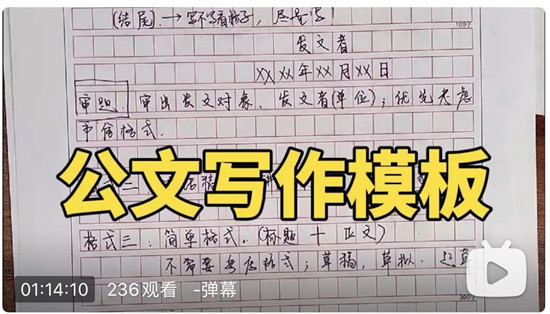 (结尾).→写不写看格子,
发文者
XX XX年XX月XX日
审题:审出发文对象、发文者(单位);优先考虑
书信格式.
公文写作模板
格式三:简单格式.(标题+正文)
不需要考虑格式;草稿,草拟.
01:14:10 236观看 -弹幕